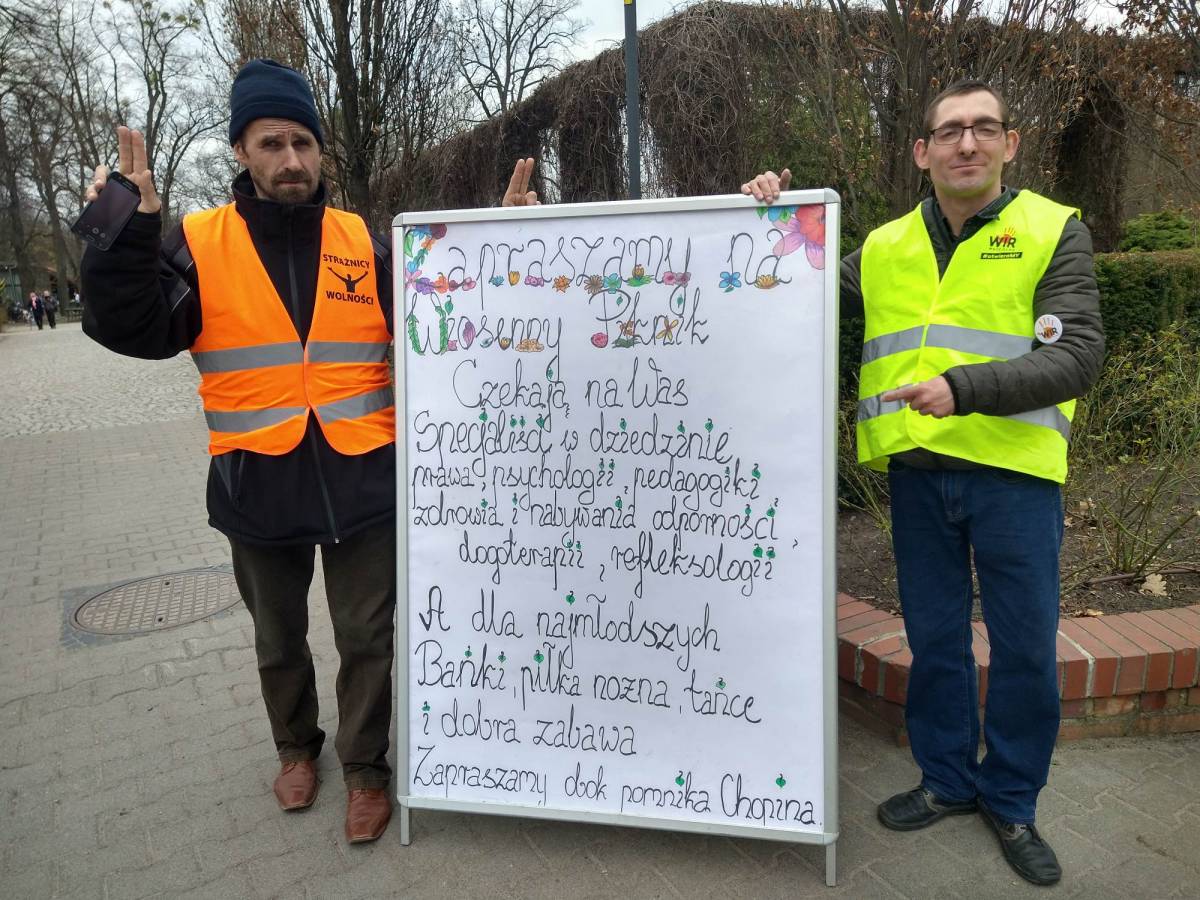 STRAŻNICY
WOLNOŚCI
WIR
#otwieraMY
WIR
Zapraszamy na
Wiosenny Piknik
Czekają na Was
Specjaliści w dziedzinie
prawa, psychologii, pedagogiki
zdrowia i nabywania odporności,
dogoterapii, refleksologii
A dla najmłodszych
Bańki, piłka nożna, tańce
i dobra zabawa
Zapraszamy obok pomnika Chopina.